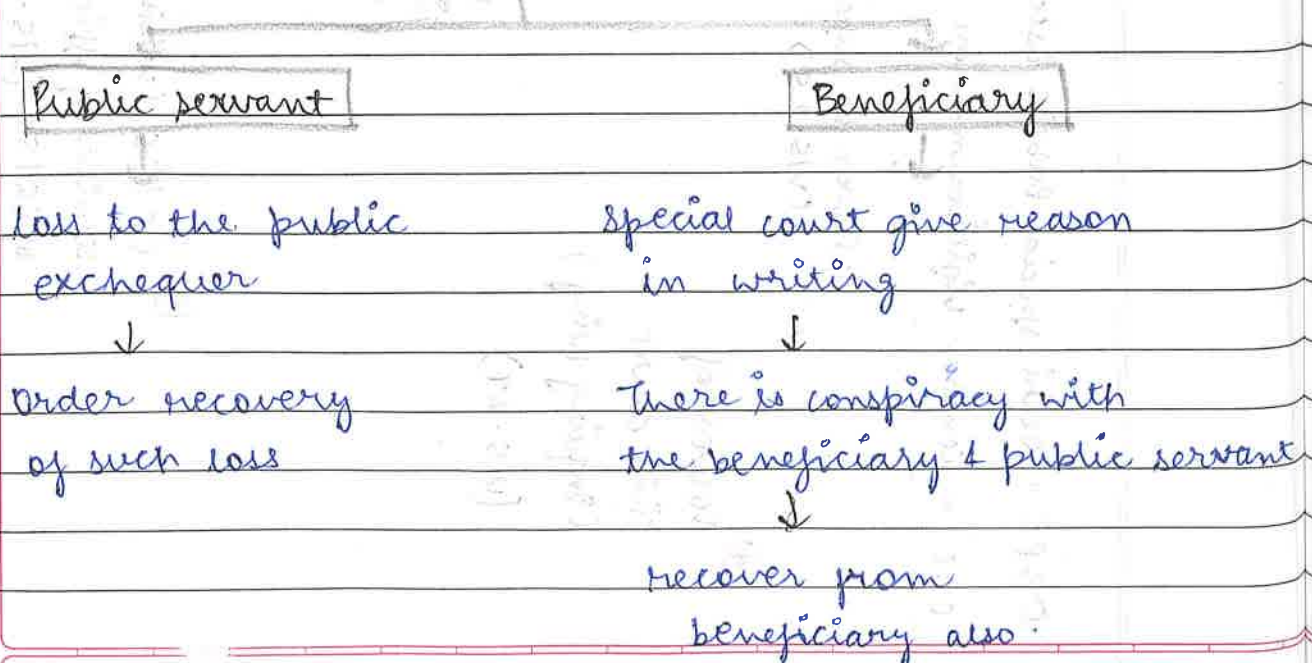 Public servant
Beneficiary
loss to the public
exchequer
↓
order recovery
of such loss
special court give reason
in writing
↓
There is conspiracy with
the beneficiary & public servant
↓
recover from
beneficiary also.